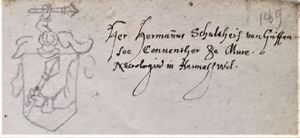 189
Her Hermanus Schultheis von Griffen-
see Conventher Ze Mure
Necrologiu in Hermetswil.